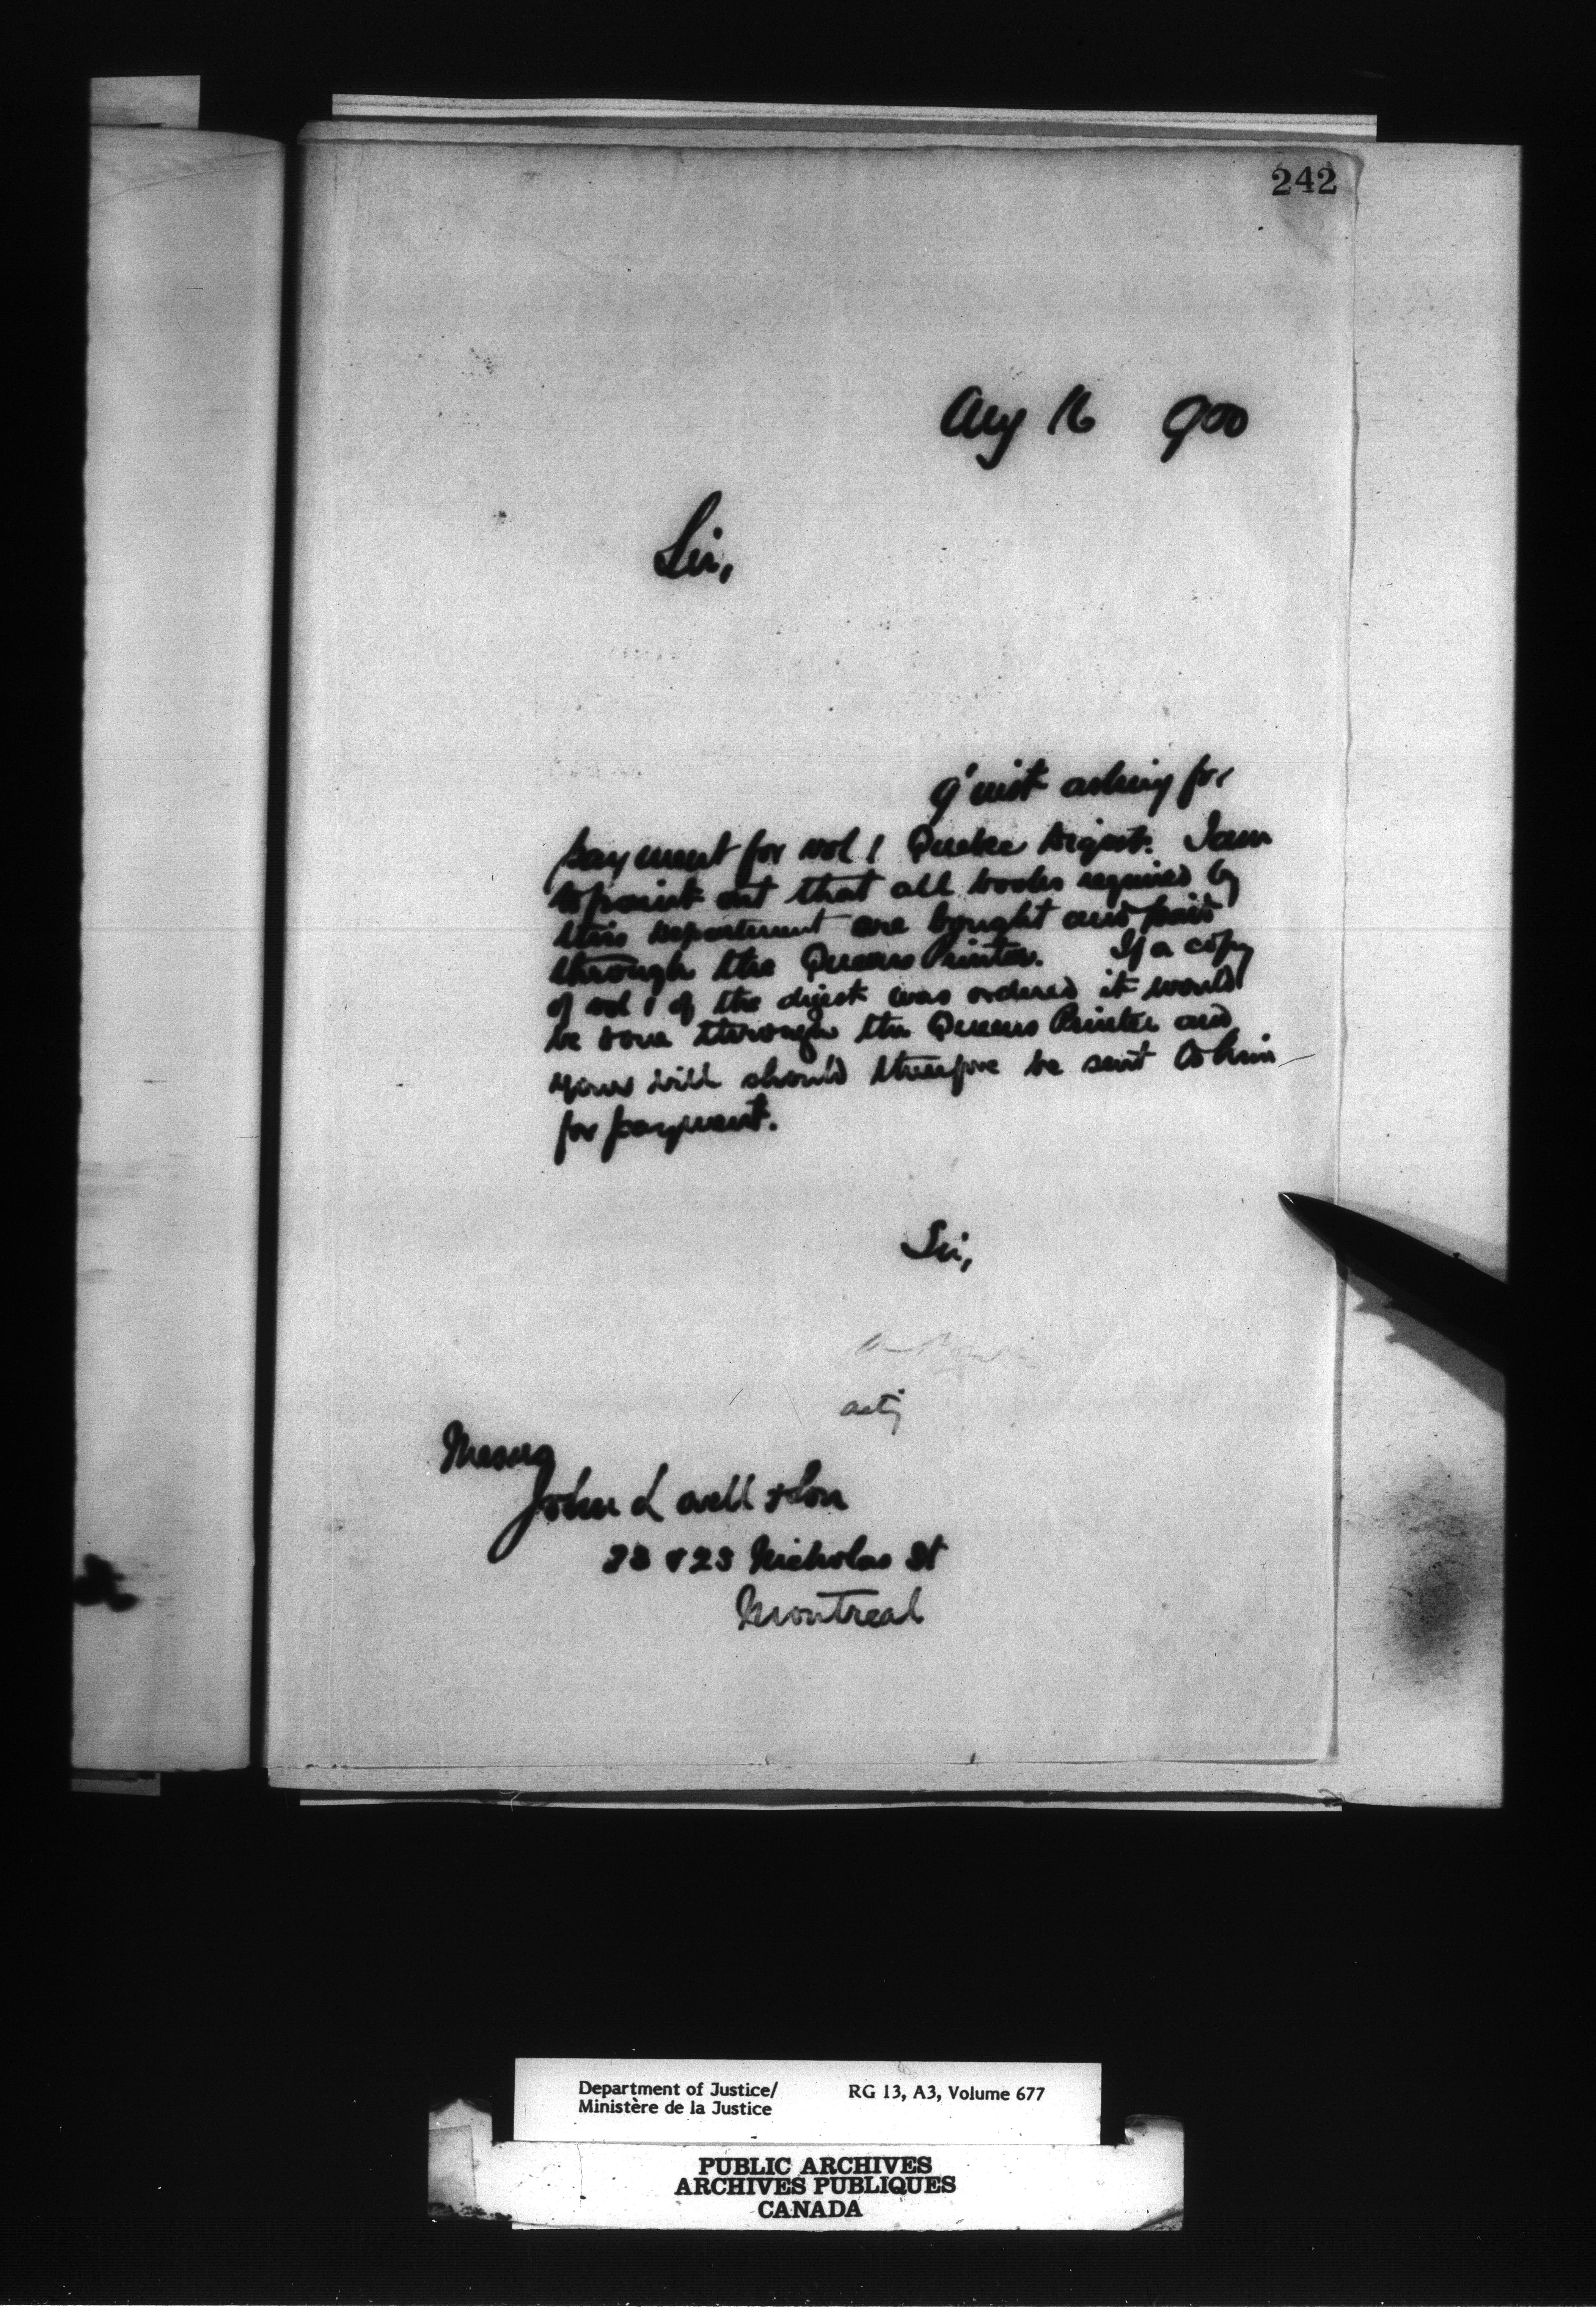 242
Aug 16 900
Sir,
9' inst asking for
payment for vol 1 Quebec Digest. I am
to point out that all books required by
this Department are bought and paid
through the Queens Printer. If a copy
of vol 1 of the digest was ordered it would
be done through the Queens Printer and
your bill should therefore be sent to him
for payment.
Sir,
actg
Messrs
John Lovell & Son
23 & 25 Nicholas St
Montreal
Department of Justice/ RG 13, A3, Volume 677
Ministère de la Justice
PUBLIC ARCHIVES
ARCHIVES PUBLIQUES
CANADA